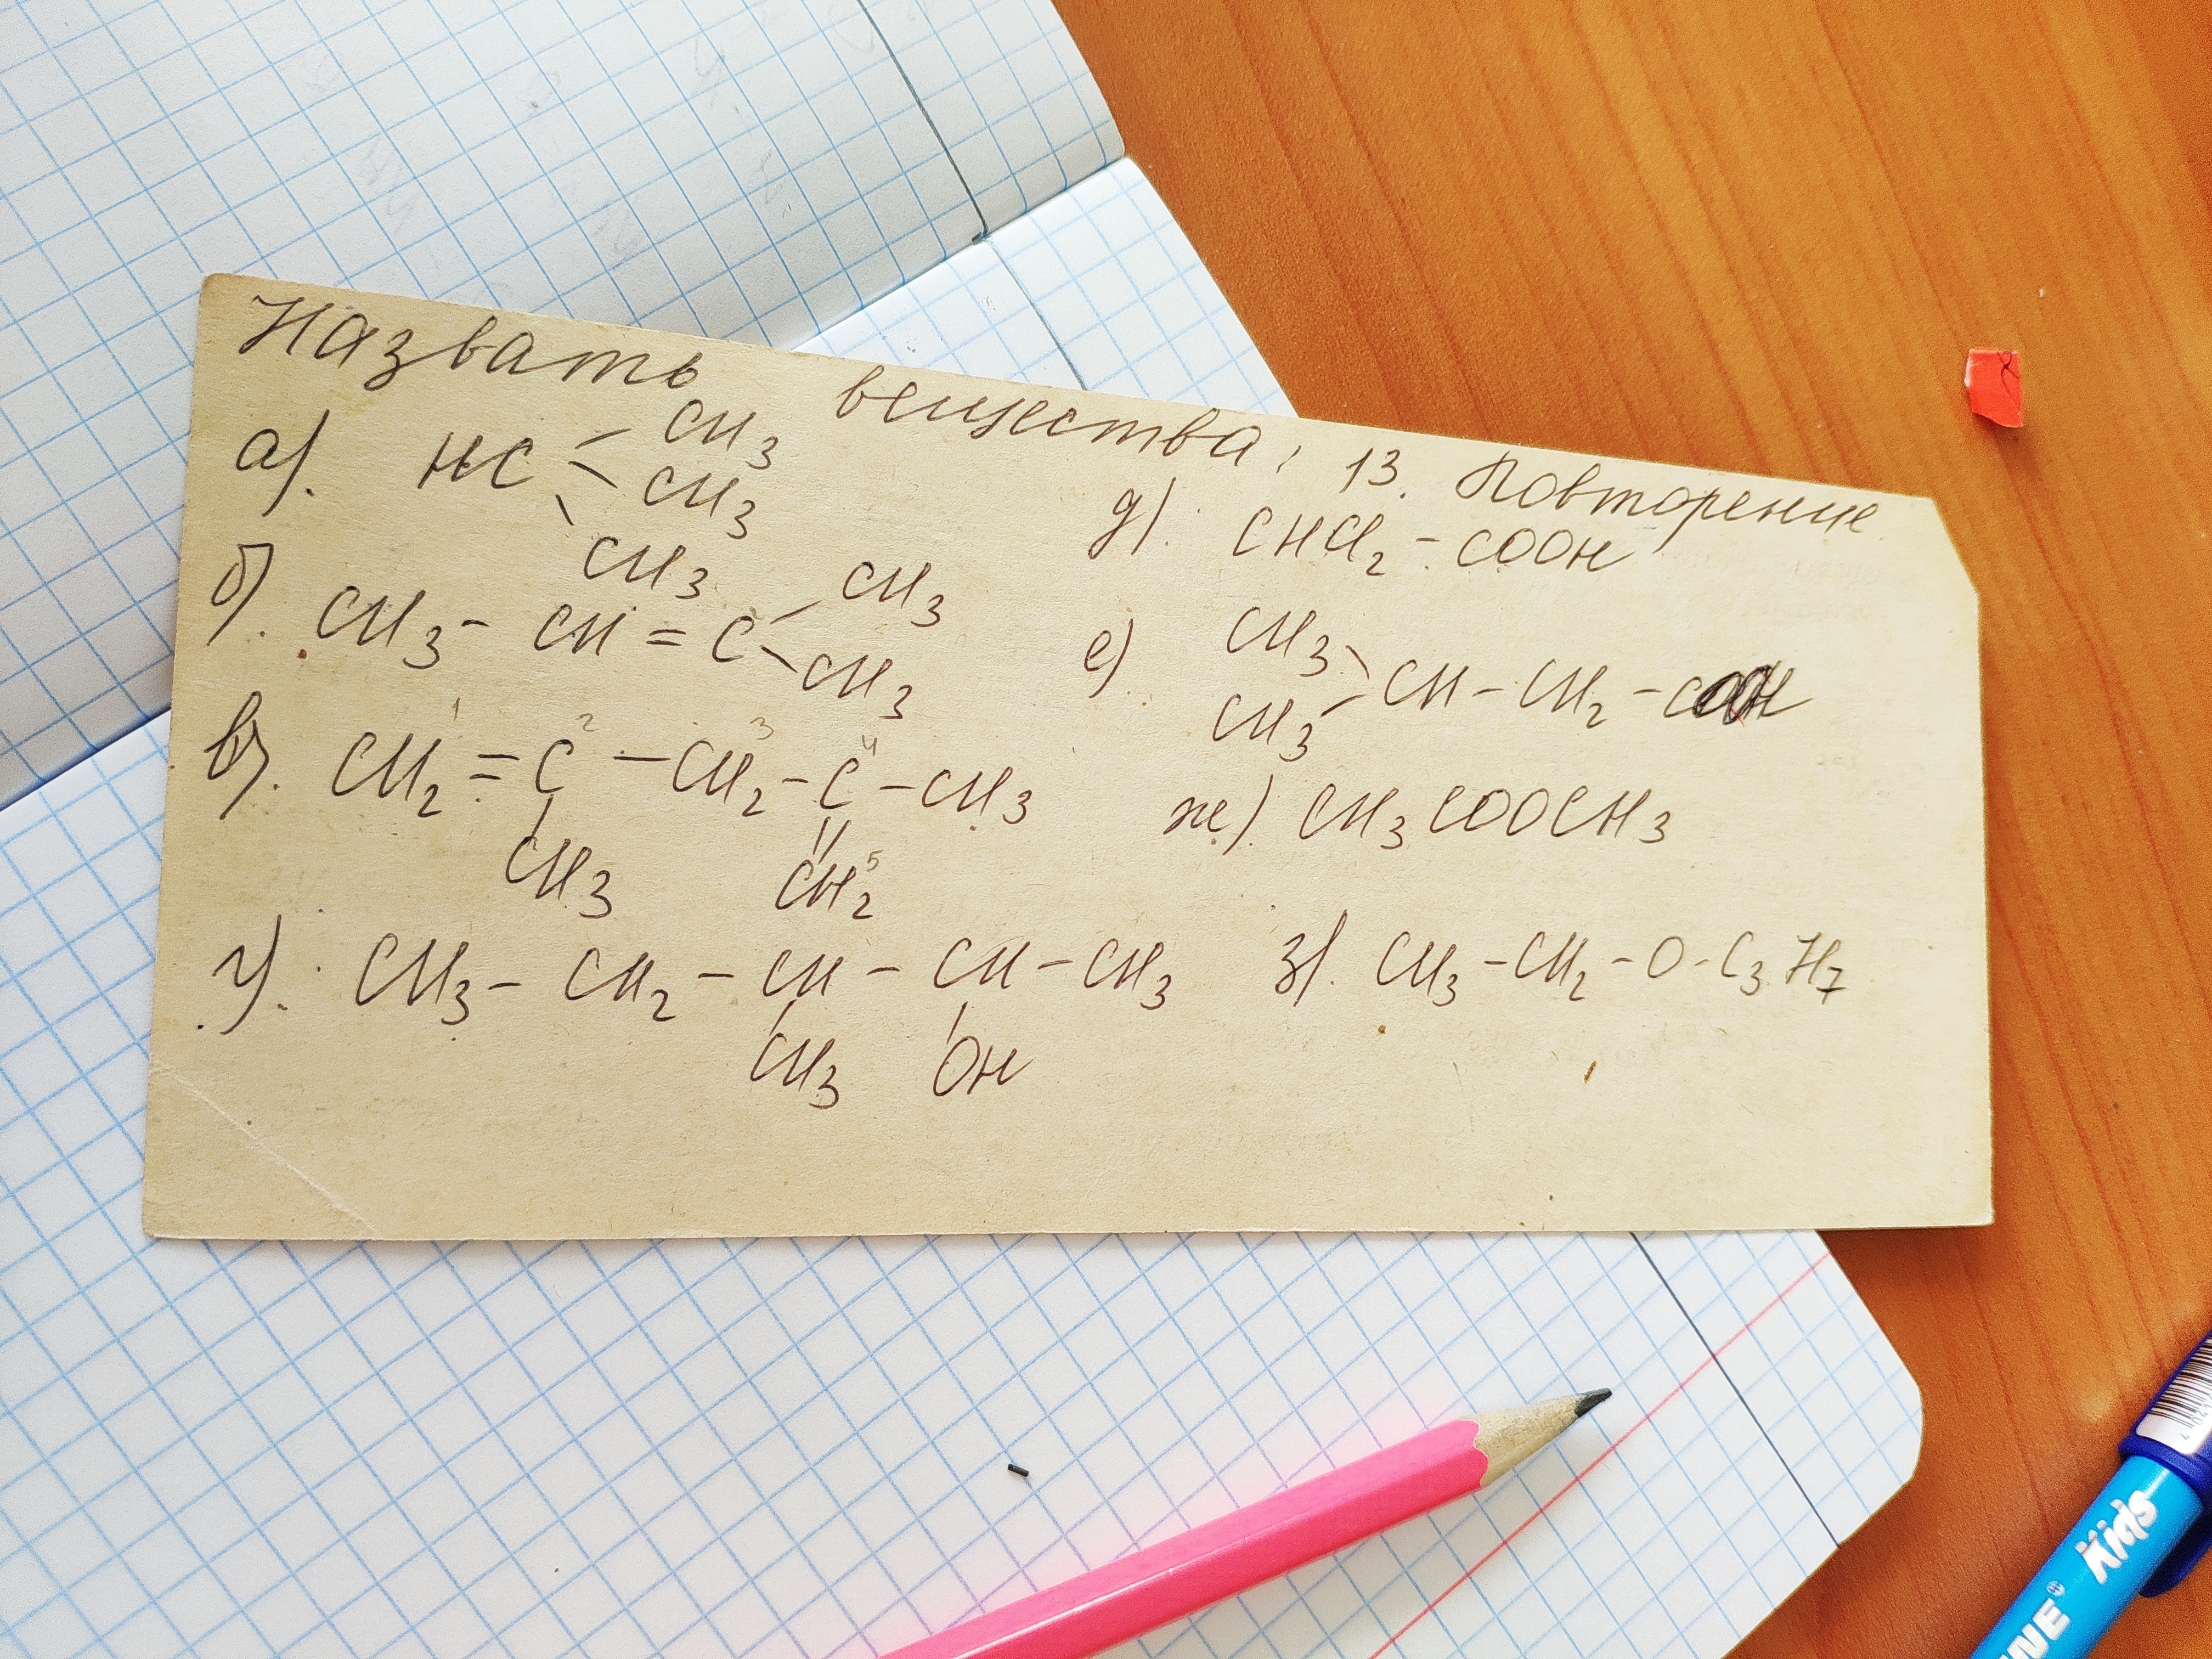 Назвать вещества, 13. Повторение
а). HC CH3
CH3
CH3
б). CH3 - CH = C CH3
CH3
в). CH2 = C - CH2 - C - CH3
1 2 3 4
CH3 CH2 5
г). CH3 - CH2 - CH - CH - CH3
CH3 OH
д). CHCl2 - COOH
е) CH3
CH3 CH - CH2 - COOH
ж). CH3COOCH3
з). CH3 - CH2 - O - C3H7
Kids